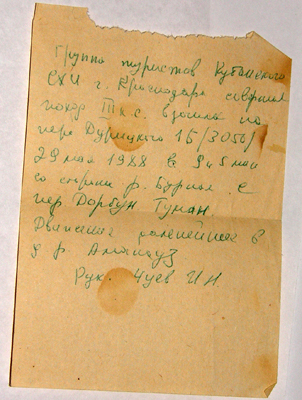 Группа туристов Кубанского
СХИ г. Краснодара совершая
поход Т.к.с. взошла на
пер Дурицкого 1Б/3050/
29 мая 1988 в 9ч 5 мин
со стороны р. Бурная с
пер Дорбун Туман
Движение дальнейшее в
д р. Аманауз
Рук. Чуев И Н